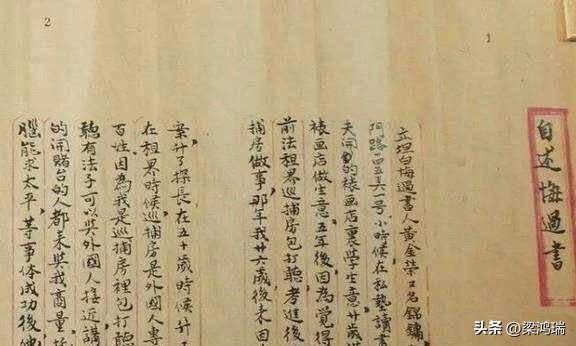 1
自述悔過書
立坦白悔過書人黃金荣又名錦鏞
路一五五六号小時候在私塾讀書
夫開的裱画店裏學生意廿歲
裱画店做生意五年後因為覺得
前法租界巡捕房包打聽考進後
捕房做事那年我廿六歲後来因
2
案升了探長在五十歲時候升
在租界時候巡捕房是外國人專
百姓因為我是巡捕房裡包打
聽有法子可以與外國人接近講
的開賭台的人都来與我商量
腦能求太平等事体成功後
头条 @梁鸿瑞